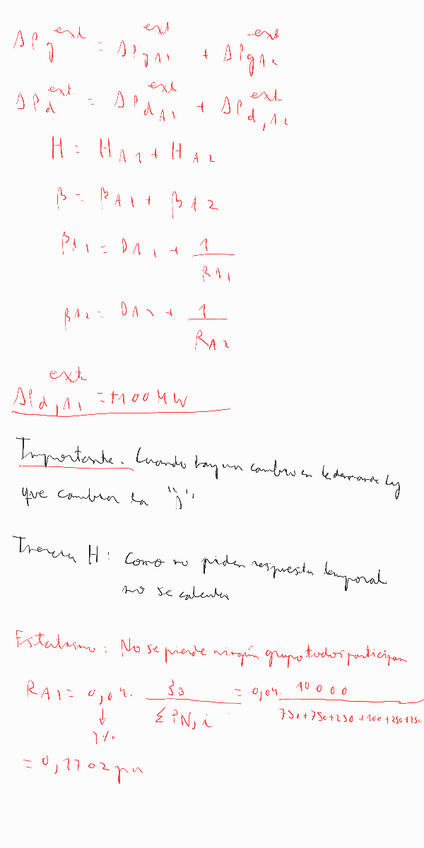 ΔPg^ext = ΔPgA1^ext + ΔPgA2^ext
ΔPd^ext = ΔPdA1^ext + ΔPd,A2^ext
H = HA1 + HA2
β = βA1 + βA2
βA1 = DA1 + 1/RA1
βA2 = DA2 + 1/RA2
ΔPd,A1^ext = +100 MW
Importante. Cuando hay un cambio en la demanda hay
que cambiar la "j"
Inercia H: Como no piden respuesta temporal
no se calcula
Estatismo: No se pierde ningún grupo todos participan
RA1 = 0,04 · SB / Σ PN,i = 0,04 · 10000 / 750+750+250+100+250+250
↓
4%
= 0,1702 pu